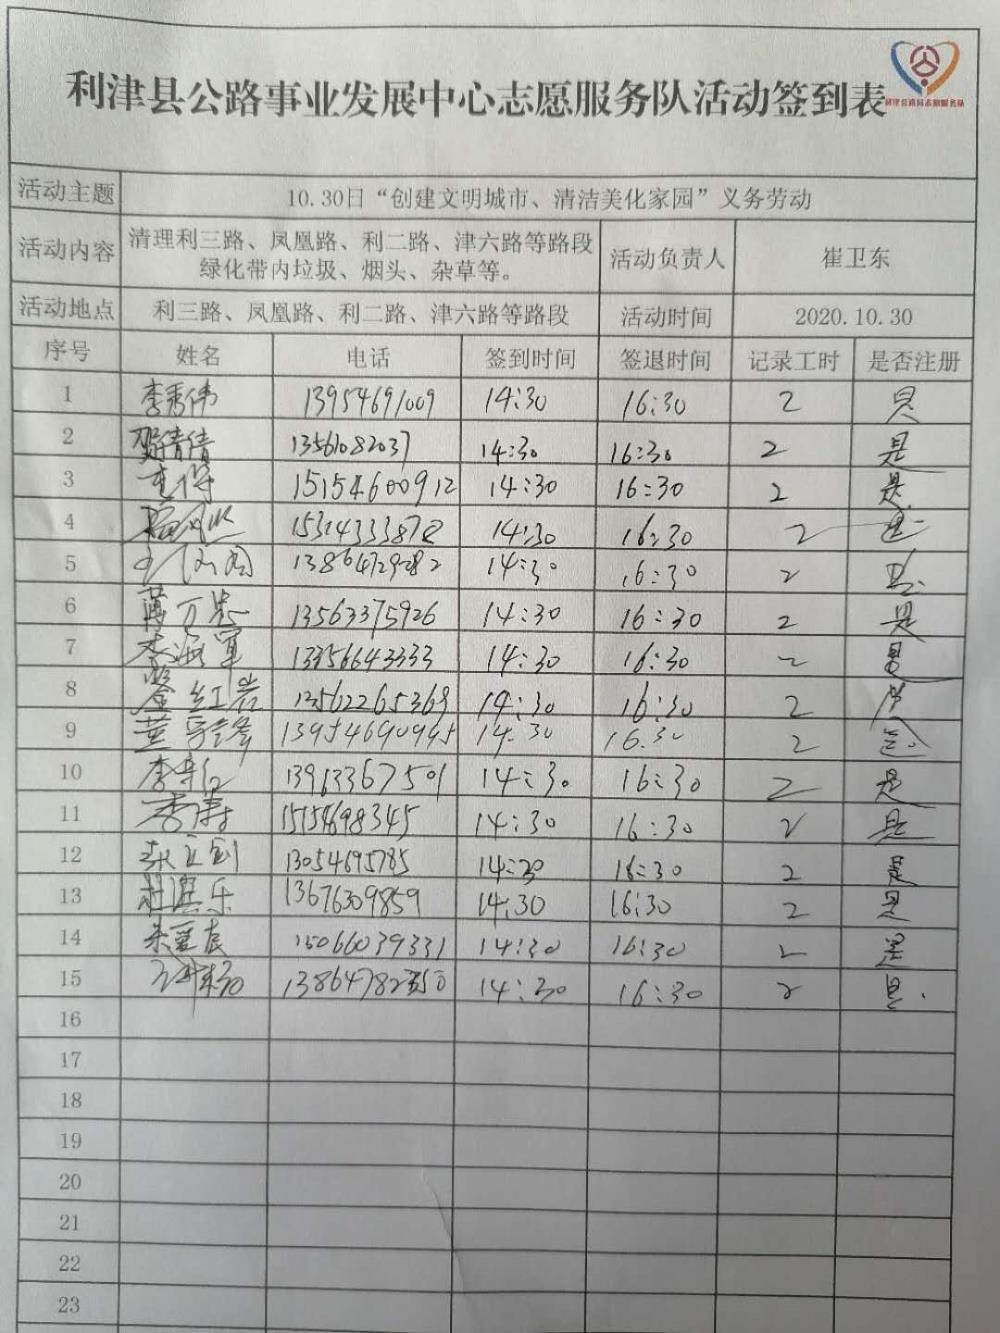 利津县公路事业发展中心志愿服务队活动签到表
利津县公路局志愿服务队
活动主题 10.30日“创建文明城市、清洁美化家园”义务劳动
活动内容 清理利三路、凤凰路、利二路、津六路等路段绿化带内垃圾、烟头、杂草等。 活动负责人 崔卫东
活动地点 利三路、凤凰路、利二路、津六路等路段 活动时间 2020.10.30
序号 姓名 电话 签到时间 签退时间 记录工时 是否注册
1 李秀伟 13954691009 14:30 16:30 2 是
2 13561082037 14:30 16:30 2 是
3 15154600912 14:30 16:30 2 是
4 14:30 16:30 2 是
5 14:30 16:30 2 是
6 薄万忠 13563375926 14:30 16:30 2 是
7 李海军 14:30 16:30 2 是
8 红岩 13562265369 14:30 16:30 2 是
9 14:30 16:30 2 是
10 14:30 16:30 2 是
11 李涛 15154698345 14:30 16:30 2 是
12 13054695785 14:30 16:30 2 是
13 13676309859 14:30 16:30 2 是
14 15066039331 14:30 16:30 2 是
15 14:30 16:30 2 是
16
17
18
19
20
21
22
23